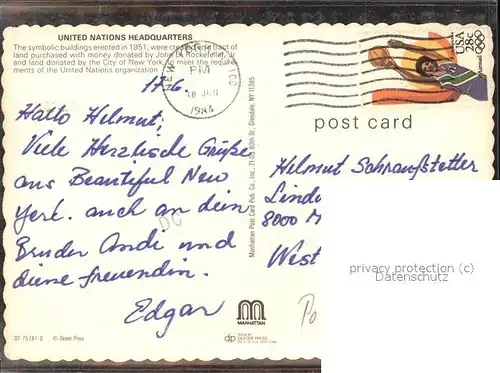 UNITED NATIONS HEADQUARTERS
The symbolic buildings erected in 1951, were on a tract of
land purchased with money donated by John D. Rockefeller, Jr.
and land donated by the City of New York, to meet the require-
ments of the United Nations organization.
NEW YORK
PM
18 JUN
1984
USA
28c
Airmail
post card
17.6.
Hallo Helmut,
Viele Herzlische Grüße
aus Beautiful New
York. auch an dein
Bruder Andi und
diene freuendin.
Edgar
Helmut Schraußstetter
8000 M
West
Manhattan Post Card Pub. Co., Inc., 71-05 80th St., Glendale, NY 11385
privacy protection (c)
Datenschutz (c)
MANHATTAN
dp
DEXTER PRESS
© Dexter Press
Po